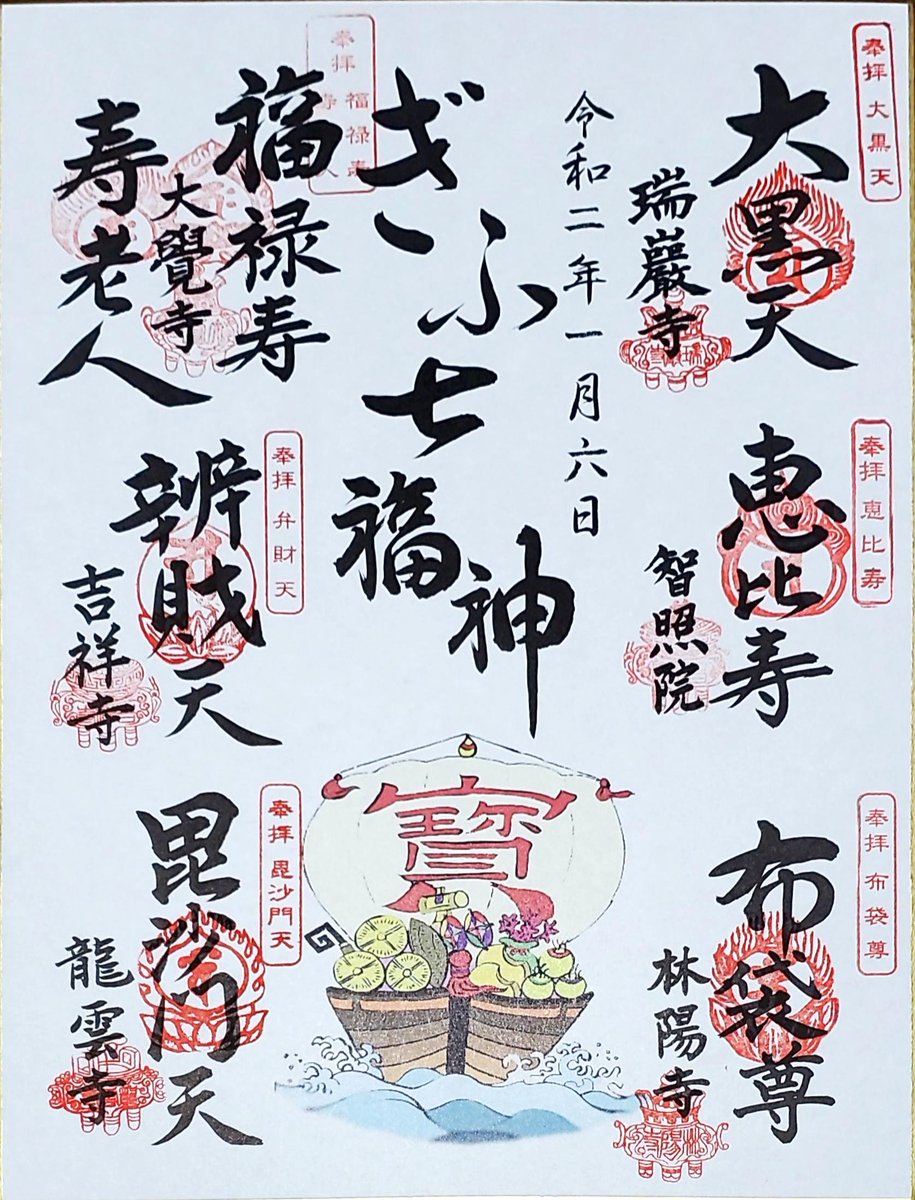 奉拝 大黒天
大黒天
瑞巖寺
奉拝 恵比寿
恵比寿
智照院
奉拝 布袋尊
布袋尊
林陽寺
令和二年一月六日
ぎふ七福神
寶
奉拝 福禄寿
福禄寿
大覺寺
寿老人
奉拝 弁財天
辨財天
吉祥寺
奉拝 毘沙門天
毘沙門天
龍雲寺